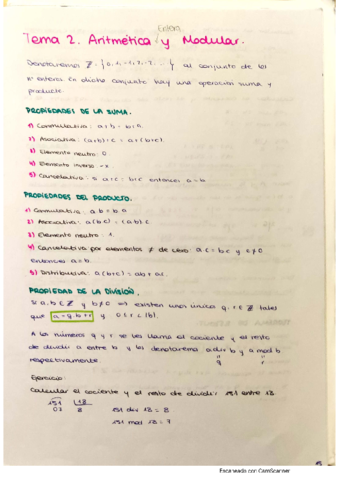 Entera
Tema 2. Aritmética y Modular.
Denotaremos Z = {0, 1, -1, 2, -2 ... } al conjunto de los
nº enteros. En dicho conjunto hay una operación suma y
producto.
PROPIEDADES DE LA SUMA.
1) Conmutativa: a+b = b+a.
2) Asociativa: (a+b)+c = a+(b+c).
3) Elemento neutro: 0
4) Elemento inverso -a.
5) Cancelativa: si a+c = b+c entonces a=b
PROPIEDADES DEL PRODUCTO.
1) Conmutativa: a b = b a
2) Asociativa: a(bc) = (ab)c
3) Elemento neutro: 1.
4) Cancelativa por elementos ≠ de cero: a·c = b·c y c≠0
entonces a=b.
5) Distributiva: a(b+c) = ab + ac.
PROPIEDAD DE LA DIVISIÓN.
Si a, b ∈ Z y b≠0 ⇒ existen unos únicos q, r ∈ Z tales
que a = q·b + r y 0 ≤ r < |b|.
A los números q y r se les llama el cociente y el resto
de dividir a entre b y los denotaremos a div b y a mod b
q r
respectivamente.
Ejercicio:
Calcular el cociente y el resto de dividir 151 entre 18
151 18
07 8
151 div 18 = 8
151 mod 18 = 7
Escaneado con CamScanner